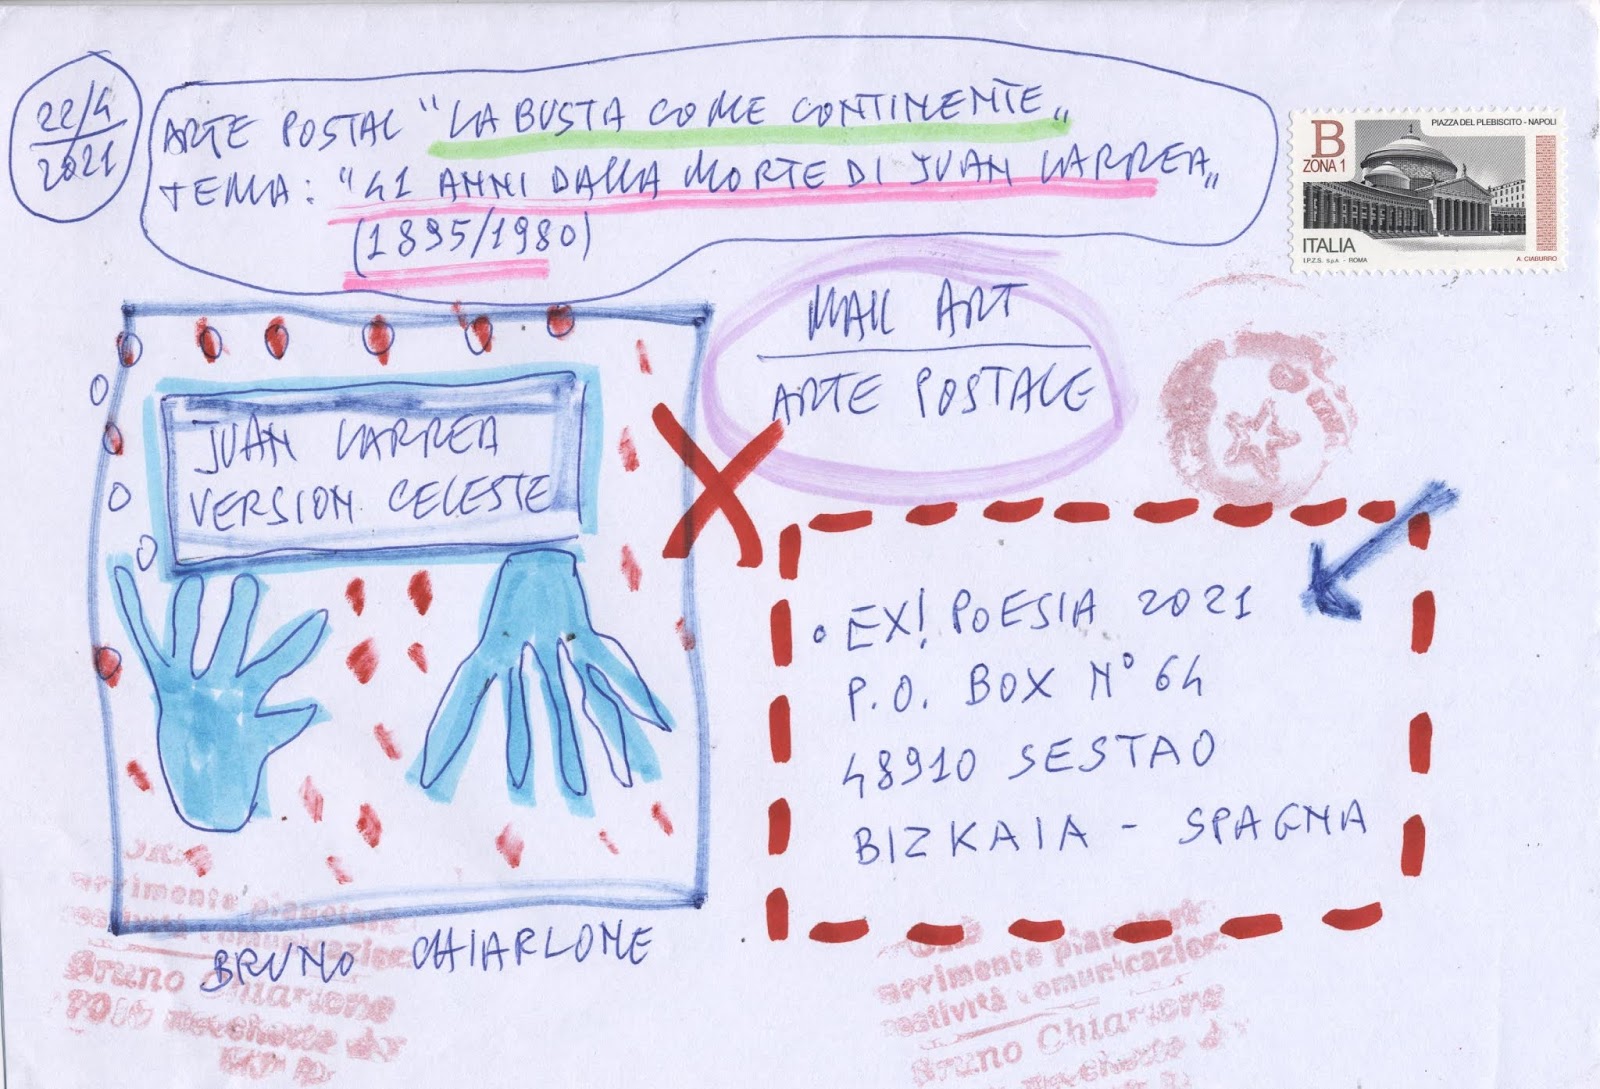 22/4
2021
ARTE POSTAL "LA BUSTA COME CONTINENTE"
TEMA: "41 ANNI DALLA MORTE DI JUAN LARREA"
(1895/1980)
B
ZONA 1
PIAZZA DEL PLEBISCITO - NAPOLI
ITALIA
I.P.Z.S. S.p.A. - ROMA
A. CIABURRO
MAIL ART
ARTE POSTALE
JUAN LARREA
VERSION CELESTE
EX! POESIA 2021
P.O. BOX N° 64
48910 SESTAO
BIZKAIA - SPAGNA
BRUNO CHIARLONE
Bruno Chiarlone
Bruno Chiarlone